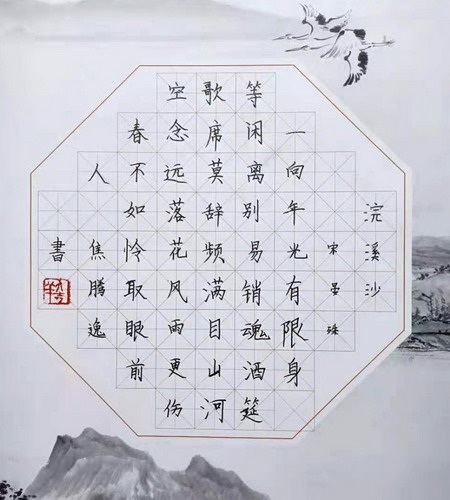 浣溪沙
宋晏殊
一向年光有限身
等闲离别易销魂酒筵
歌席莫辞频满目山河
空念远落花风雨更伤
春不如怜取眼前
人 焦腾逸
書